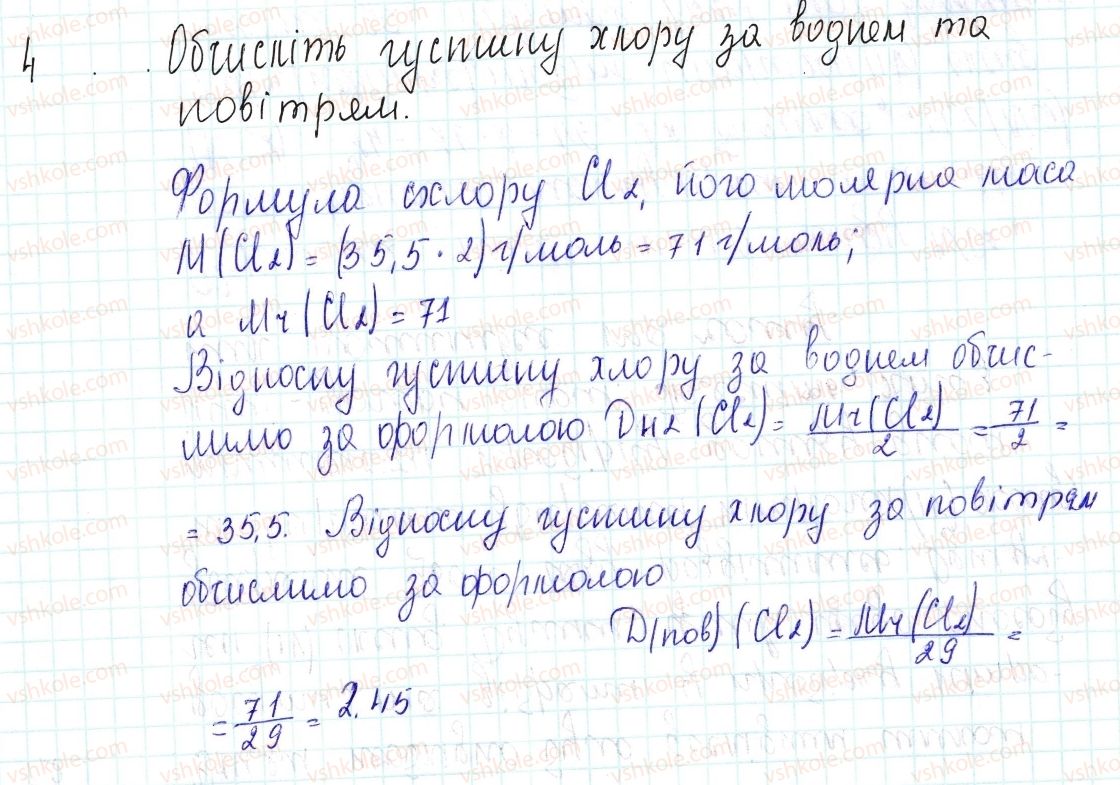 4 Обчисліть густину хлору за воднем та
повітрям.
Формула хлору Cl2, його молярна маса
M(Cl2) = (35,5 · 2) г/моль = 71 г/моль;
а Mr(Cl2) = 71
Відносну густину хлору за воднем обчис-
лимо за формолою DH2 (Cl2) = Mr(Cl2)/2 = 71/2 =
= 35,5. Відносну густину хлору за повітрям
обчислимо за формолою
D(пов) (Cl2) = Mr(Cl2)/29 =
= 71/29 = 2.45